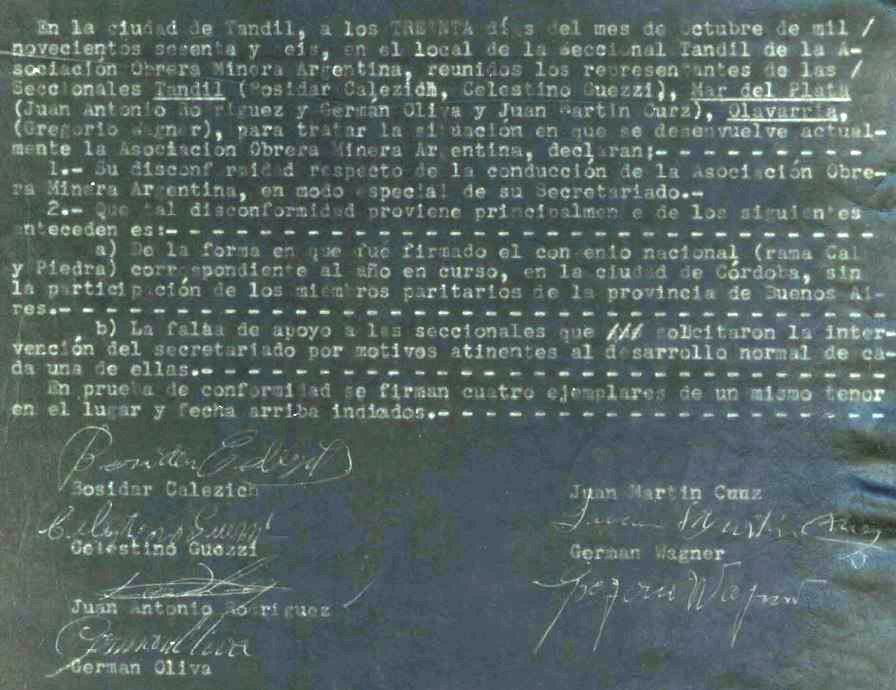 En la ciudad de Tandil, a los TREINTA días del mes de octubre de mil /
novecientos sesenta y seis, en el local de la Seccional Tandil de la A-
sociación Obrera Minera Argentina, reunidos los representantes de las /
Seccionales Tandil (Bosidar Calezich, Celestino Guezzi), Mar del Plata
(Juan Antonio Rodriguez y Germán Oliva y Juan Martin Curz), Olavarria,
(Gregorio Wagner), para tratar la situación en que se desenvuelve actual-
mente la Asociación Obrera Minera Argentina, declaran;- - - - - - - - - -
1.- Su disconformidad respecto de la conducción de la Asociación Obre-
ra Minera Argentina, en modo especial de su Secretariado.-
2.- Que tal disconformidad proviene principalmente de los siguientes
antecedentes:- - - - - - - - - - - - - - - - - - - - - - - - - - - - - -
a) De la forma en que fué firmado el convenio nacional (rama Cal
y Piedra) correspondiente al año en curso, en la ciudad de Córdoba, sin
la participación de los miembros paritarios de la provincia de Buenos Ai-
res.- - - - - - - - - - - - - - - - - - - - - - - - - - - - - - - - - - -
b) La falàa de apoyo a las seccionales que /// solicitaron la inter-
vención del secretariado por motivos atinentes al desarrollo normal de ca-
da una de ellas.- - - - - - - - - - - - - - - - - - - - - - - - - - - - -
En prueba de conformidad se firman cuatro ejemplares de un mismo tenor
en el lugar y fecha arriba indiados.- - - - - - - - - - - - - - - - - - -
Bosidar Calezich
Juan Martin Cuuz
Celestino Guezzi
Celestino Guezzi
German Wagner
Gregorio Wagner
Juan Antonio Rodriguez
German Oliva
German Oliva